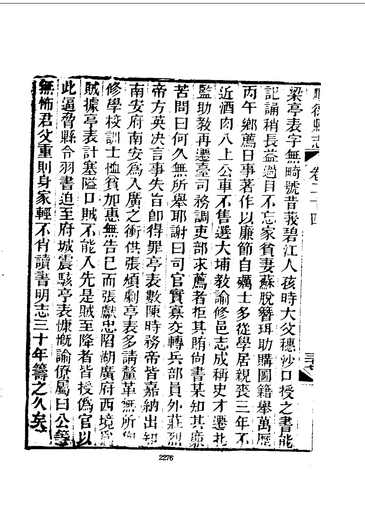 順德縣志 卷二十四
梁亭表字無畸號昔莪碧江人孩時大父穗沙口授之書能
記誦稍長益過目不忘家貧妻蘇脫簪珥助購圖籍舉萬歷
丙午鄉薦日事著作以廉節自礪士多從學居親喪三年不
近酒肉八上公車不售選大埔教諭修邑志成稱史才遷北
監助教再遷臺司務調吏部求薦者拒其賄尚書某知其廉
苦問曰何久無所舉耶謝曰司官實寡交轉兵部員外莊烈
帝方英決言事失旨卽得罪亭表數陳時務帝皆嘉納出知
南安府南安為入廣之衝供張煩劇亭表多請釐革無所
修學校訓士恤貧加惠無告已而張獻忠陷湖廣府西境
賊據亭表計塞隘口賊不能入先是賊至降者皆授偽官以
此逼脅縣令羽書迫至府城震駭亭表慷慨諭僚屬曰公等
無怖君父重則身家輕不肖讀書明志三十年籌之久矣
2276